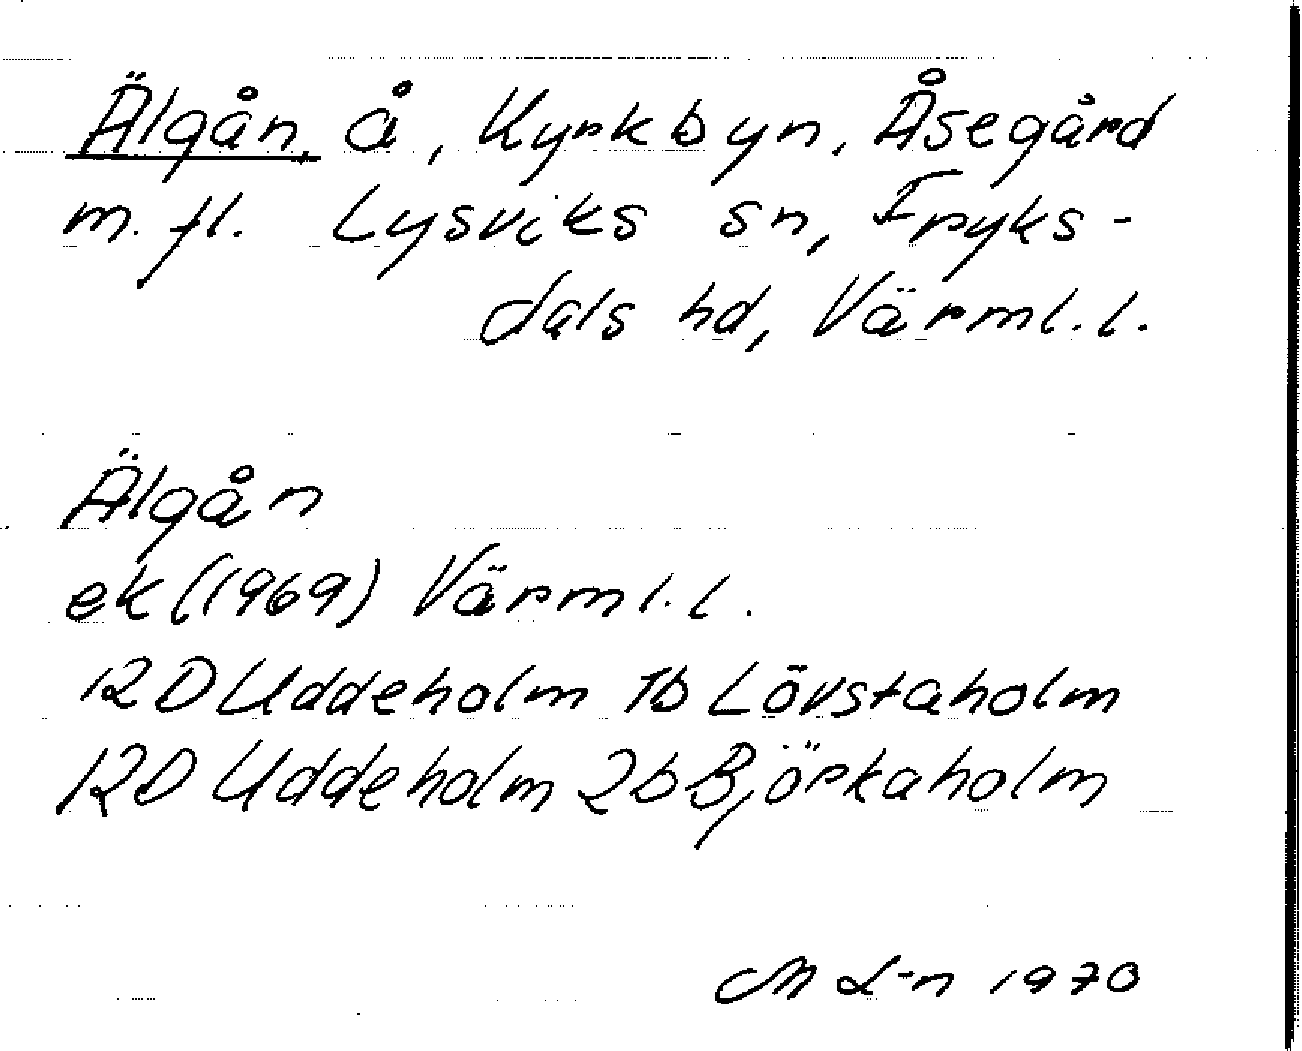 Älgån, å, Kyrkbyn, Åsegård
m. fl. Lysviks sn, Fryks-
dals hd, Värml. l.
Älgån
ek (1969) Värml. l.
12 D Uddeholm 1b Lövstaholm
12 D Uddeholm 2b Björkaholm
M L-n 1970